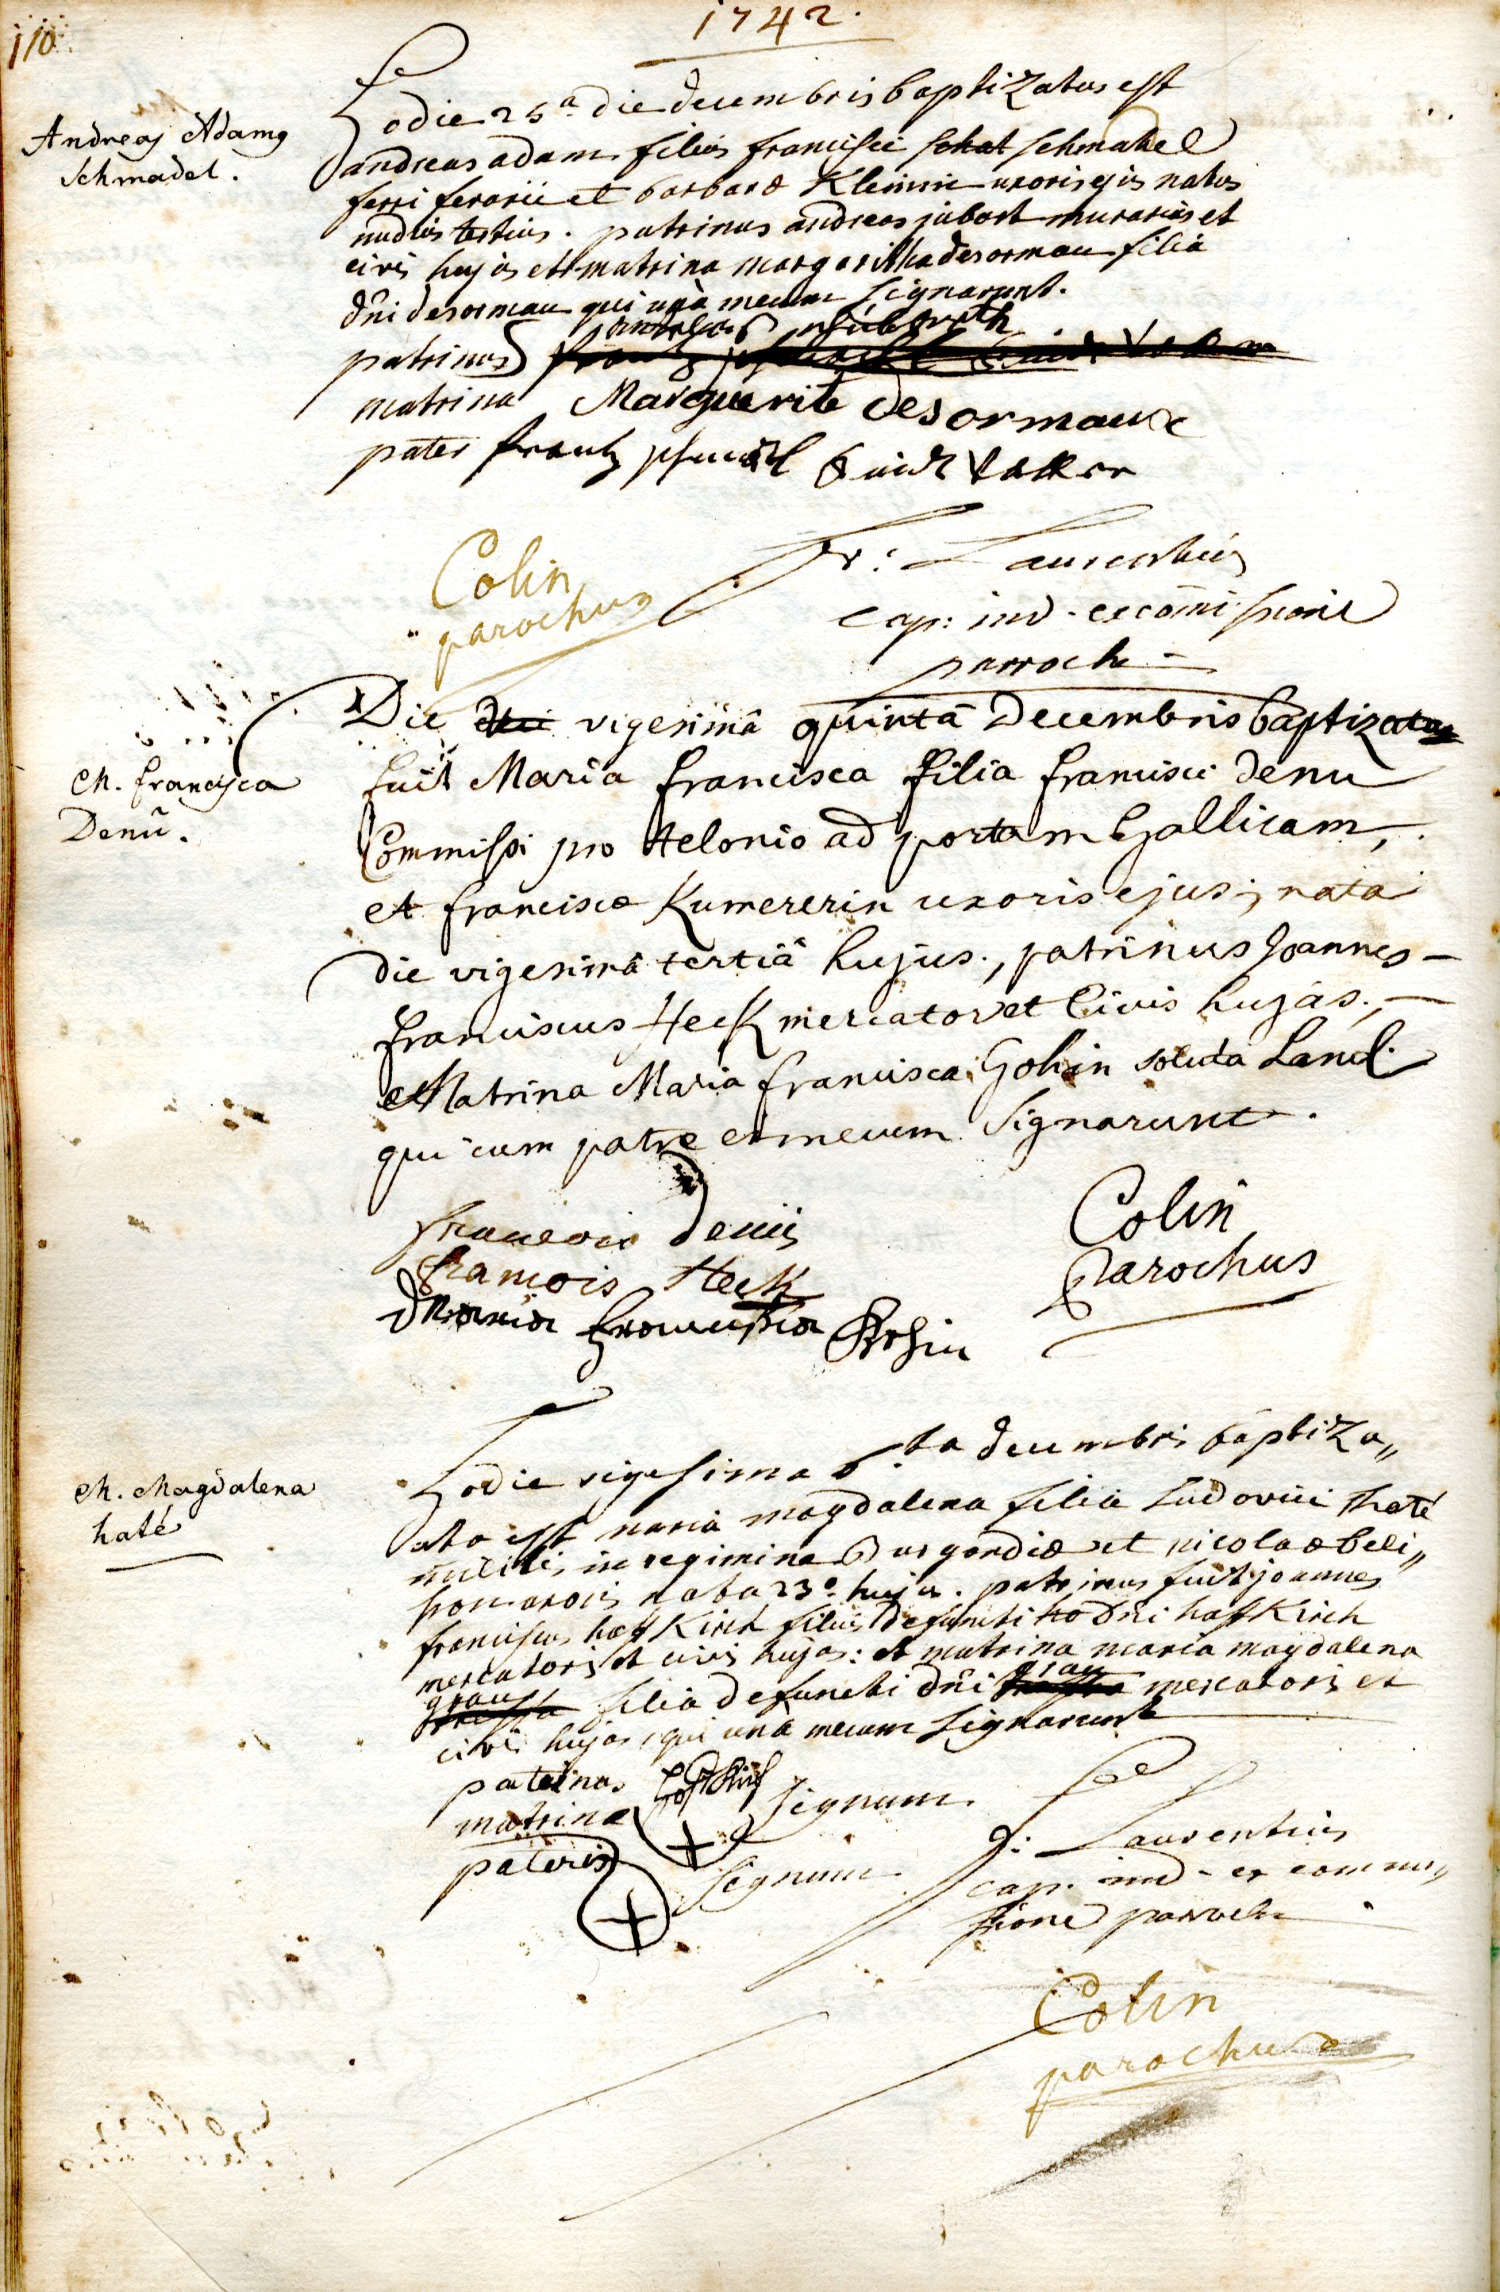 110
1742.
Andreas Adamus
Schmadel.
hodie 25a die decembris baptizatus est
andreas adam filius francisci schmadel
ferri ferarii et barbarae Kleinin uxoris ejus natus
nudius tertius. patrinus andreas jubart murarius et
civis hujas et matrina margaritha desormau filia
dni desormau qui unà mecum signarunt.
patrinus andreas
matrina Marguerite desormaux
pater frantz
Colin
parochus
fr: Laurentius
cap: ind. ex commissione
parroch
Die vigesimâ quintâ Decembris baptizata
M. francisca
Denü.
fuit Maria francisca filia francisci denu
Commissi pro telonio ad portam Gallicam,
et franciscae Kumererin uxoris ejus, nata
die vigesimâ tertiâ hujus., patrinus Joannes
franciscus Heck mercator et Civis hujas.,
Matrina Maria francisca Gohin soluta Land.
qui cum patre et mecum signarunt.
francois denis
francois Heck
Maria francisca Gohin
Colin
Parochus
M. Magdalena
haté
hodie vigesima 5.ta decembris baptiza„
ata est maria magdalena filia Ludovici haté
militis in regimine Burgondiae et nicolae beli„
son uxoris nata 23a hujus. patrinus fuit joannes
franciscus hafKirch filius defuncti dni hafKirch
mercatoris et civis hujas: et matrina maria magdalena
grau filia defuncti dni grau mercatoris et
civis hujas, qui unà mecum signarunt
patrinus hofkirch
matrinae + signum
pateris + signum
fr: Laurentius
cap. ind. ex commis„
sione parroch
Colin
parochus